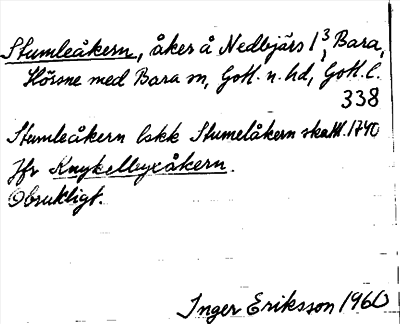 Stumleåkern, åker å Nedbjärs 1³, Bara,
Hörsne med Bara sn, Gotl. n. hd, Gotl. l.
338
Stumleåkern lskk Stumelåkern skattl. 1740
Jfr Knykelbyxåkern.
Obrukligt.
Inger Eriksson 1960